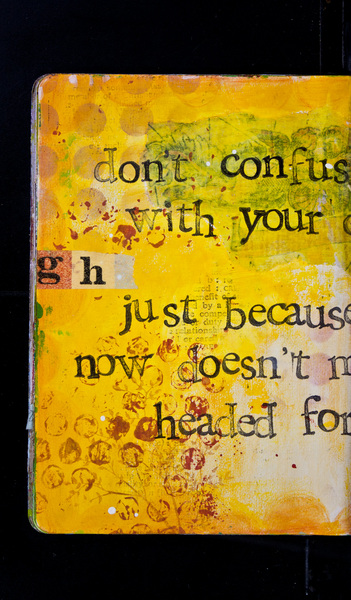 don't confus
with your
g h
just because
now doesn't m
headed for